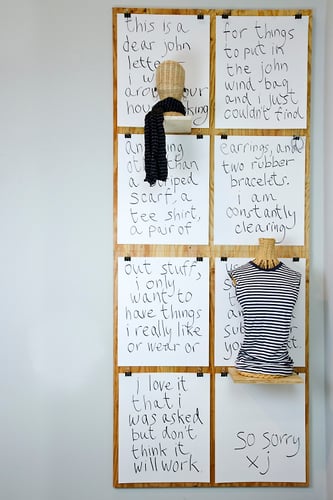 this is a
dear john
lette
i w
arou our
hou king
for things
to put in
the john
wind bag
and i just
couldn't find
any ing
other than
a striped
scarf, a
tee shirt,
a pair of
earrings, and
two rubber
bracelets.
i am
constantly
clearing
out stuff,
i only
want to
have things
i really like
or wear or
us
s
t
a
sub
yo t.
i love it
that i
was asked
but don't
think it
will work.
so sorry
xj